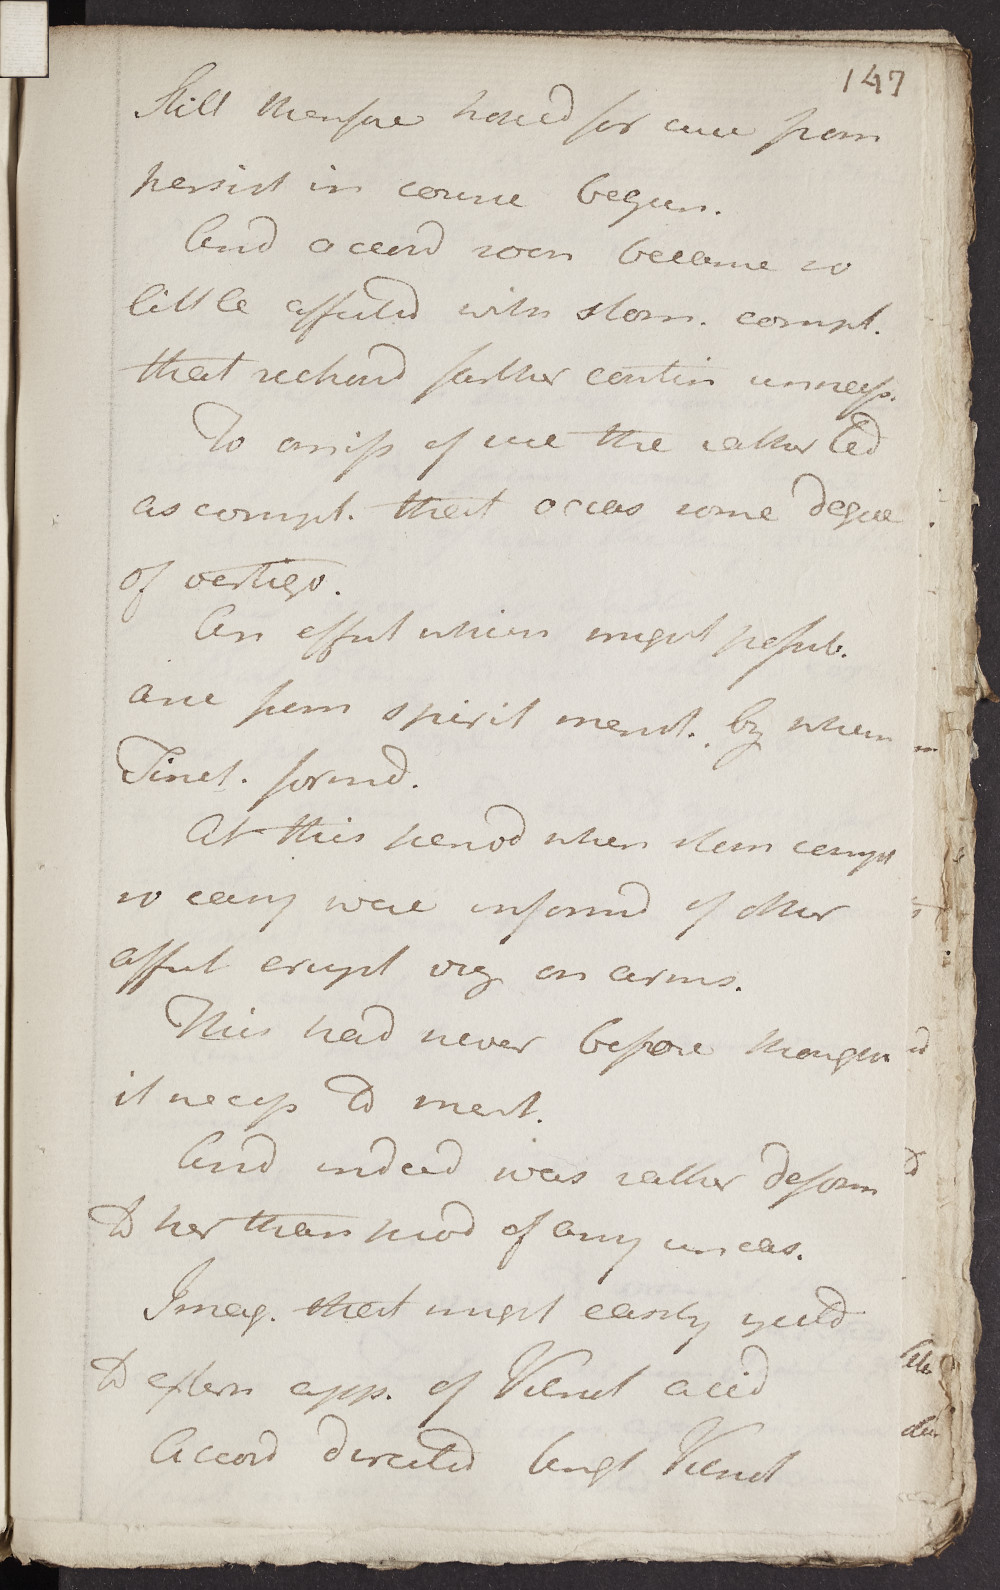 147
Still therefore hoped for cure from
persist in course begun.
And accord soon became so
little affected with stom. compl.
that reckond farther contin unnecess.
To omiss of use the rather led
as compl. that occas some degree
of vertigo.
An effect which might possib.
arise from spirit menst. by which
Tinct. formd.
At this period when stom compl
so easy were informd of other
affect erupt viz on arms.
This had never before thought
it necess to ment.
And indeed was rather deform
to her than prod of any uneas.
Imag. that might easily yield
to extern app. of Vitriol acid
Accord directed Ungt Vitriol